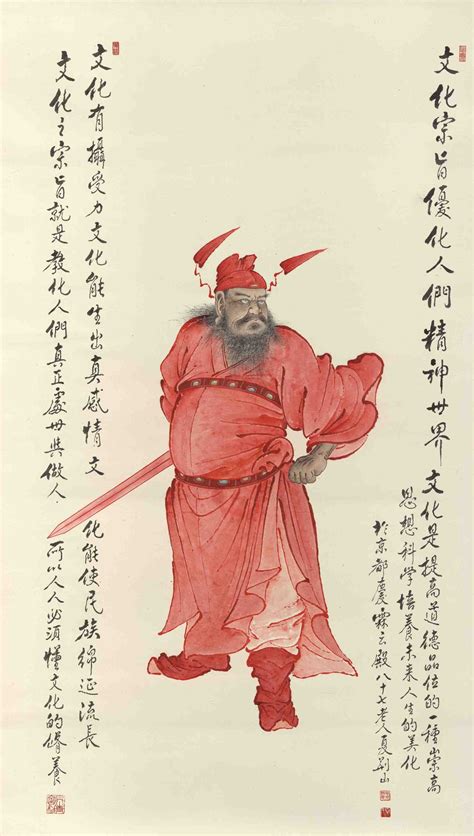 文化宗旨優化人們精神世界文化是提高道德品位的一種崇高
思想科学培養未来人生的美化
於京都慶霖云殿八十七老人夏荆山
文化有攝受力文化能生出真感情文化能使民族綿延流長
文化之宗旨就是教化人們真正處世與做人.所以人人必須懂文化的修養